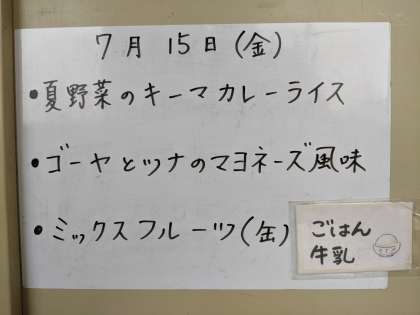 7月 15日(金)
•夏野菜のキーマカレーライス
•ゴーヤとツナのマヨネーズ風味
•ミックスフルーツ(缶)
ごはん
牛乳